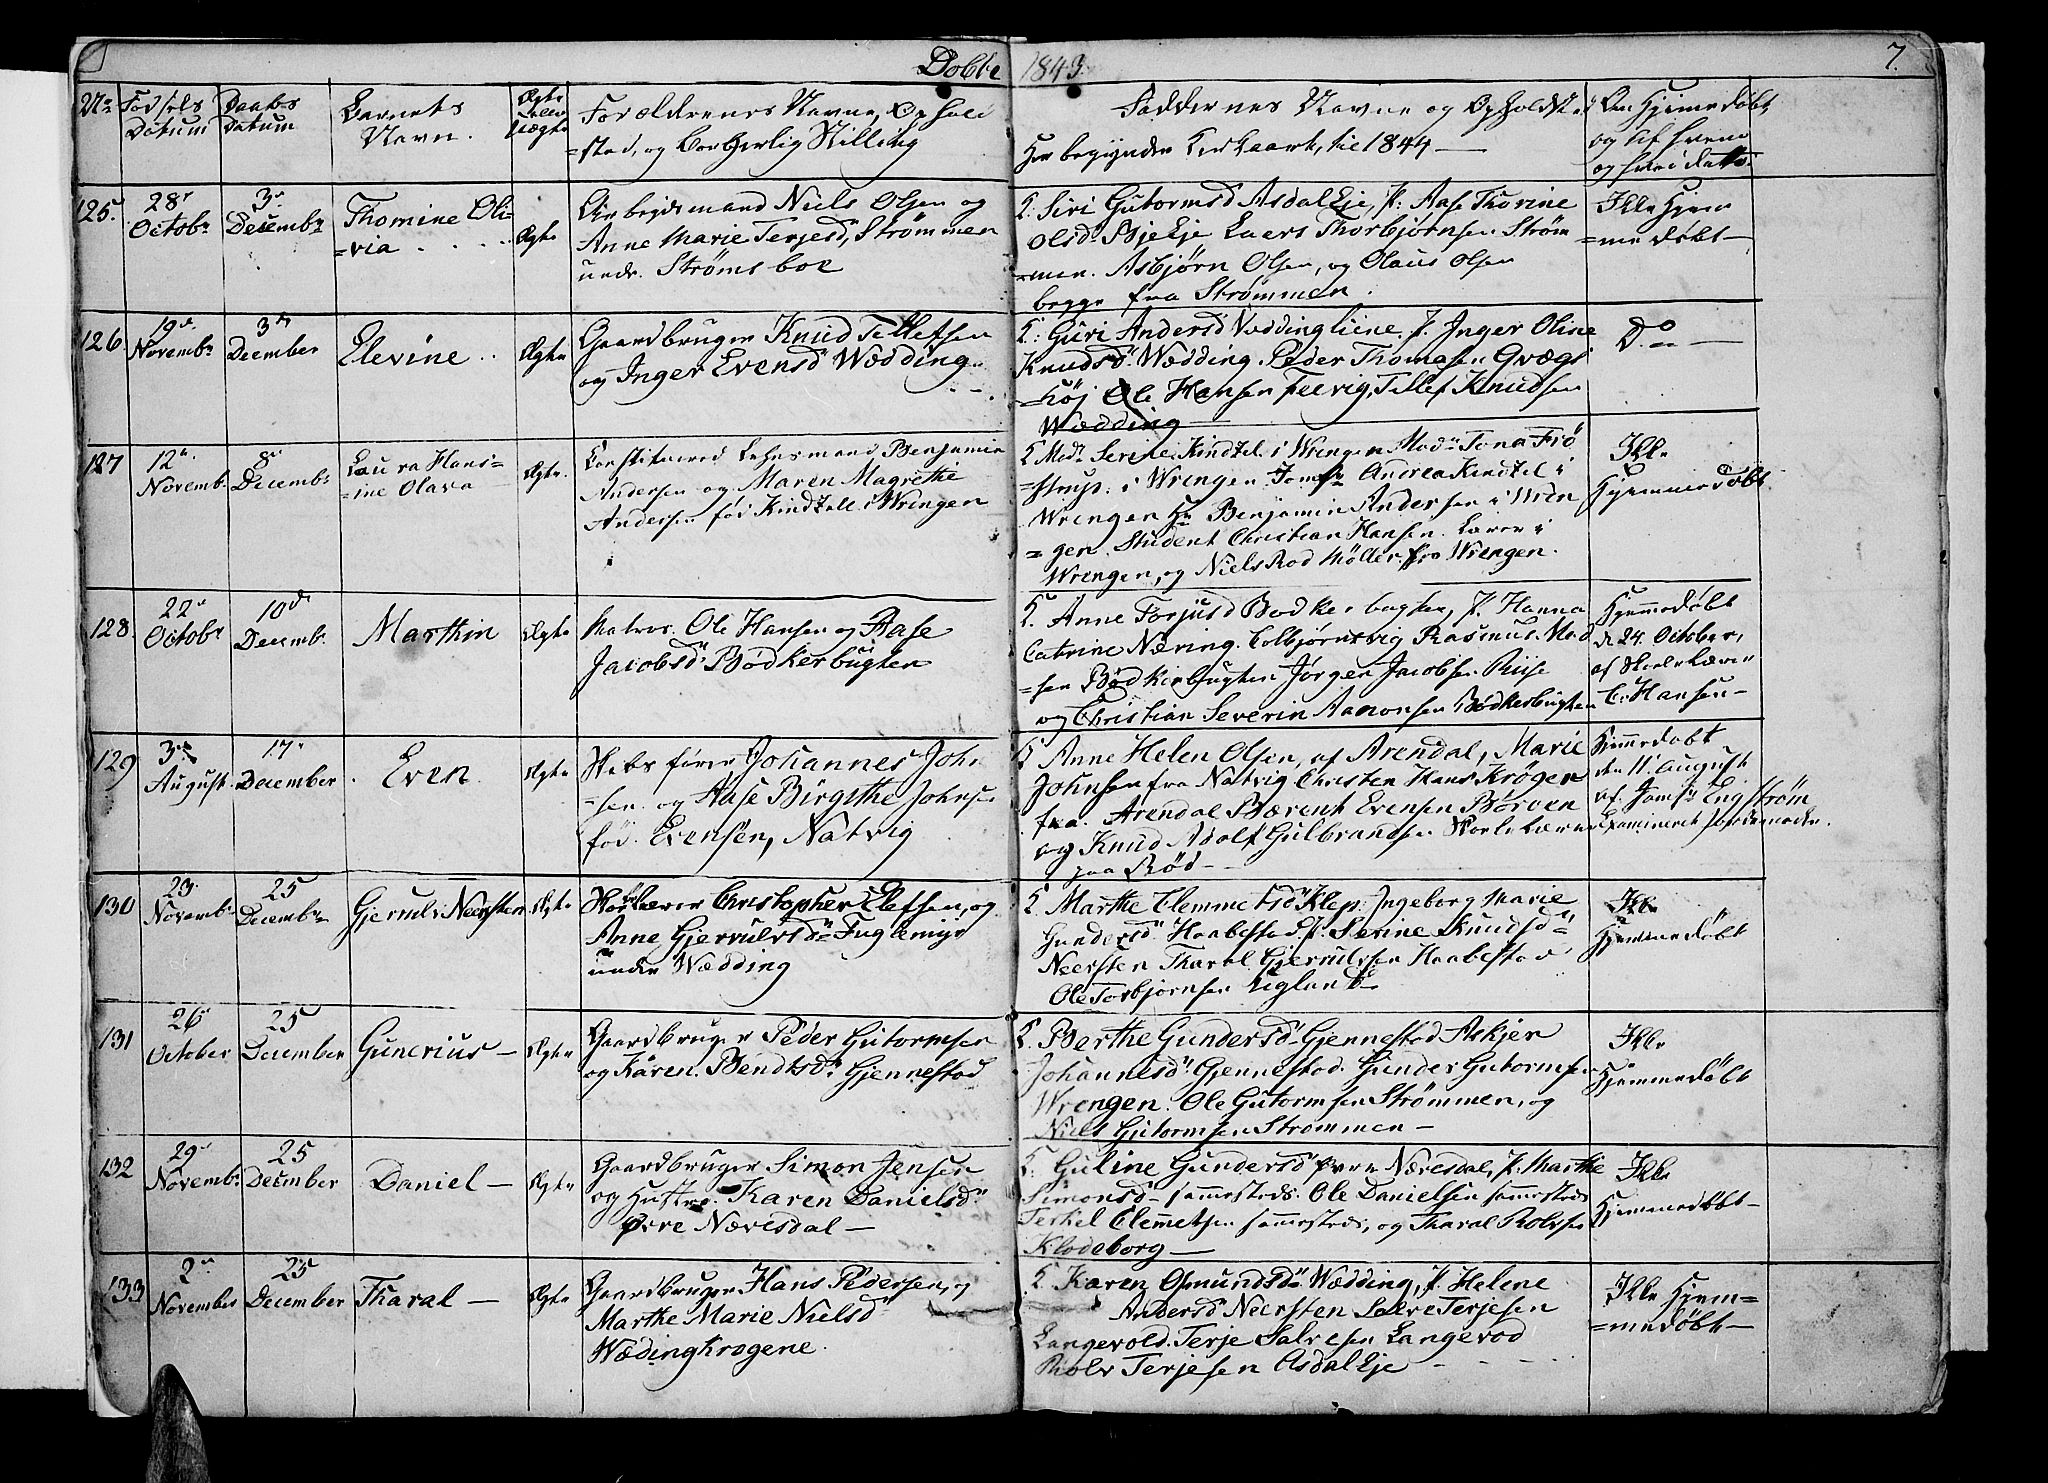 Döbte 1843. 7.
No Födsels Datum Daabs Datum Barnets Navn. Ægte eller Uægte Forældrenes Navne, Ophold
=sted, og Borgerlig Stilling
Faddernes Navne og Opholdsted
Her begynder Kirkeaaret, til 1844 —
Om Hjemmedöbt,
og af hvem
og hvor
125. 28d Octobr 3d Decembr Thomine Oli-
=via Ægte
Arbeidsmand Niels Olsen og
Anne Marie Terjesd, Strømmen
undr. Strømsboe
K. Siri Gutormsd Asdal Eje, P. Aase Thorine
Olsd Eje Laers Thorbjørnsen Strøm
=men. Asbjørn Olsen, og Olaus Olsen
begge fra Strømmen.
Ikke Hjem
=me døbt —
126 19d Novembr 3d December Elevine Ægte
Gaardbruger Knud Tellefsen
og Inger Evensd Wædding
K: Guri Andersd Væddingliene, P. Inger Oline
Knudsd Wædding. Peder Thomasen Grægs
=høj Ole Hansen Fevig, Tellef Knudsen
Wædding —
Do —
127 12d Novemb. 8d Decembr Laura Hans=
=ine Olava Ægte
Constitueret Lehnsmand Benjamin
Andersen og Maren Magrethe
Andersen fød Kindtell i Wrengen
K Madm Serine Kindtel i Wrengen Madm Tona Frö
=strup i Wrengen Jomfr Andrea Kindtel i
Wrengen Hr Benjamin Andersen i Wren
=gen. Student Christian Hansen. Lærer i
Wrengen, og Niels Rod Møller fra Wrengen.
Ikke
Hjemmedøbt
128 22d Octobr 10d Decembr. Marthin Ægte
Matros. Ole Hansen og Aase
Jacobsd Bødkerbugten
K. Anne Torjusd Bødkerbugten, P. Hanna
Catrine Næring. Colbjørnsvig Rasmus Mad
=sen Bødkerbugten Jørgen Jacobsen Riise
og Christian Severin Aanonsen Bødkerbugten
Hjemmedøbt
d 24. October,
af Skolelærer
C. Hansen —
129 3d August 17d December Even Ægte
Skibsfører Johannes John
=sen og Aase Birgithe Johnsen
fød. Evensen, Natvig
K Anne Helen Olsen, af Arendal, Marie
Johnsen fra Natvig Christen Hans Krøger
fra. Arendal Bærent Evensen
og Knud Adolf Gulbrandsen Skolelærer
paa Rød —
Hjemmedøbt
den 11. August
af. Jomfr Engstrøm
Examineret Jordemoder.
130 23. Novembr 25 Decembr Gjerulv Neersten Ægte
Skolelærer Christopher Elefsen, og
Anne Gjerrulvsd Fuglemyr
under Wædding
K Marthe Clemmetsd Klep. Ingeborg Marie
Gundersd Haabestad P. Serine Knudsd
Neersten Tharal Gjerulvsen Haabestad
Ole Torbjørnsen
Ikke
Hjemmedøbt
131 26d October 25 December Gunerius — Ægte
Gaardbruger Peder Gutormsen
og Karen. Bendtsd. Gjennestad
K. Berthe Gundersd Gjennestad Askjer
Johannesd Gjennestad. Gunder Gutormsen
Wrengen. Ole Gutormsen Strømmen, og
Niels Gutormsen Strømmen —
Ikke
Hjemmedøbt
132 29d Novembr. 25 December Daniel — Ægte
Gaardbruger Simon Jensen
og Hustru. Karen Danielsd
Øvre Næresdal —
K: Guline Gundersd Øvre Næresdal, P. Marthe
Simonsd — sammesteds. Ole Danielsen sammesteds
Terkel Clemmetsen sammesteds, og Tharal Rolvsen
Klodeborg —
Ikke
Hjemmedøbt —
133 2d November 25 December Tharal — Ægte
Gaardbruger Hans Pedersen, og
Marthe Marie Nielsd
Wædingkrogene.
K Karen Osmundsd Wædding, P. Helene
Andersd Neersten Salve Terjesen
Langevold. Terje Salvesen Langevod
Rolv Terjesen Asdal Eje —
Ikke Hjem=
=medøbt —